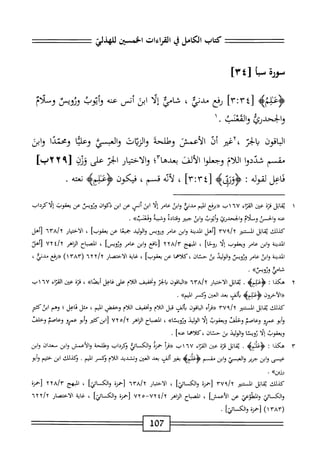 كتاب الكامل في القراءات الخمسين للهذلي
سورة سبأ [٣٤]
﴿عَٰلِمُ﴾ [٣:٣٤] رفع مدنيٌّ ، شاميٌّ إلّا ابنَ أنس عنه وأيّوبُ ورُويسٌ وسلّامٌ
والجحدريُّ والقَعْنَبُ .١
الباقون بالجرّ ،٢غير أنّ الأعمشَ وطلحةَ والزيّاتَ والعبسيَّ وعليًّا ومحمّدًا وابنَ
مقسم شدّدوا اللامَ وجعلوا الألفَ بعدها٣؛ والاختيار الجرّ على وَزْنِ [٢٢٩ب]
فاعِل لقوله : ﴿وَرَبِّي﴾ [٣:٣٤] ، لأنّه قسم ، فيكون ﴿عَٰلِمِ﴾ نعته .
١ يُقابَل قرّة عين القرّاء ١٦٧ب «برفع الميم مدنيٌّ وابنُ عامر إلّا ابنَ أنس عن ابن ذكوان ورُويسٌ عن يعقوبَ إلّا كرداب
عنه والحسنُ وسلّامٌ والجحدريُّ وأيّوبُ وابنُ جبير وقتادةُ وشيبةُ وقَعْنَبٌ» .
كذلك يُقابَل المستنير ٣٧٩/٢ [أهل المدينة وابن عامر ورويس والوليد جميعًا عن يعقوب] ، الاختيار ٦٣٨/٢ [أهل
المدينة وابن عامر ويعقوب إلّا روحًا] ، المبهج ٢٢٨/٣ [نافع وابن عامر ورُويس] ، المصباح الزاهر ٧٢٤/٢ [أهل
المدينة وابن عامر ورُويسٌ والوليدُ بنُ حسّان ،كلاهما عن يعقوب] ، غاية الاختصار ٦٢٢/٢ (١٣٨٣) «رفع مدنيٌّ ،
شاميٌّ ورُويسٌ» .
٢ هكذا : ﴿عَٰلِمِ﴾ . يُقابَل الاختيار ٦٣٨/٢ «الباقون بالجرّ وتخفيف اللام على فاعِل أيضًا» ، قرّة عين القرّاء ١٦٧ب
«الآخرون ﴿عَٰلِمِ﴾ بألف بعد العين وكسر الميم» .
كذلك يُقابَل المستنير ٣٧٩/٢ «قرأه الباقون بألفٍ قبل اللام وتخفيف اللام وخفض الميم ، مثل فاعِل ؛ وهم ابنُ كثيرٍ
وأبو عمرٍو وعاصمٌ وخلفٌ ويعقوبُ إلّا الوليدَ ورُويسًا» ، المصباح الزاهر ٧٢٥/٢ [ابن كثير وأبو عمرو وعاصمٌ وخلفٌ
ويعقوبُ إلّا رُويسًا والوليدَ بن حسّان ،كلاهما عنه] .
٣ هكذا : ﴿عَلَّٰمِ﴾ . يُقابَل قرّة عين القرّاء ١٦٧ب «قرأ حمزةُ والكسائيُّ وكرداب وطلحةُ والأعمشُ وابن سعدان وابن
عيسى وابن جرير والعبسيُّ وابن مقسم ﴿عَلَّٰمِ﴾ بغير ألف بعد العين وتشديد اللام وكسر الميم . وكذلك ابن خثيم وأبو
كذلك يُقابَل المستنير ٣٧٩/٢ [حمزة والكسائيّ] ، الاختيار ٦٣٨/٢ [حمزة والكسائيّ] ، المبهج ٢٢٨/٣ [حمزة
والكسائيّ والمطّوِّعيّ عن الأعمش] ، المصباح الزاهر ٧٢٤/٢-٧٢٥ [حمزة والكسائيّ] ، غاية الاختصار ٦٢٢/٢
(١٣٨٣) [حمزة والكسائيّ] .
107